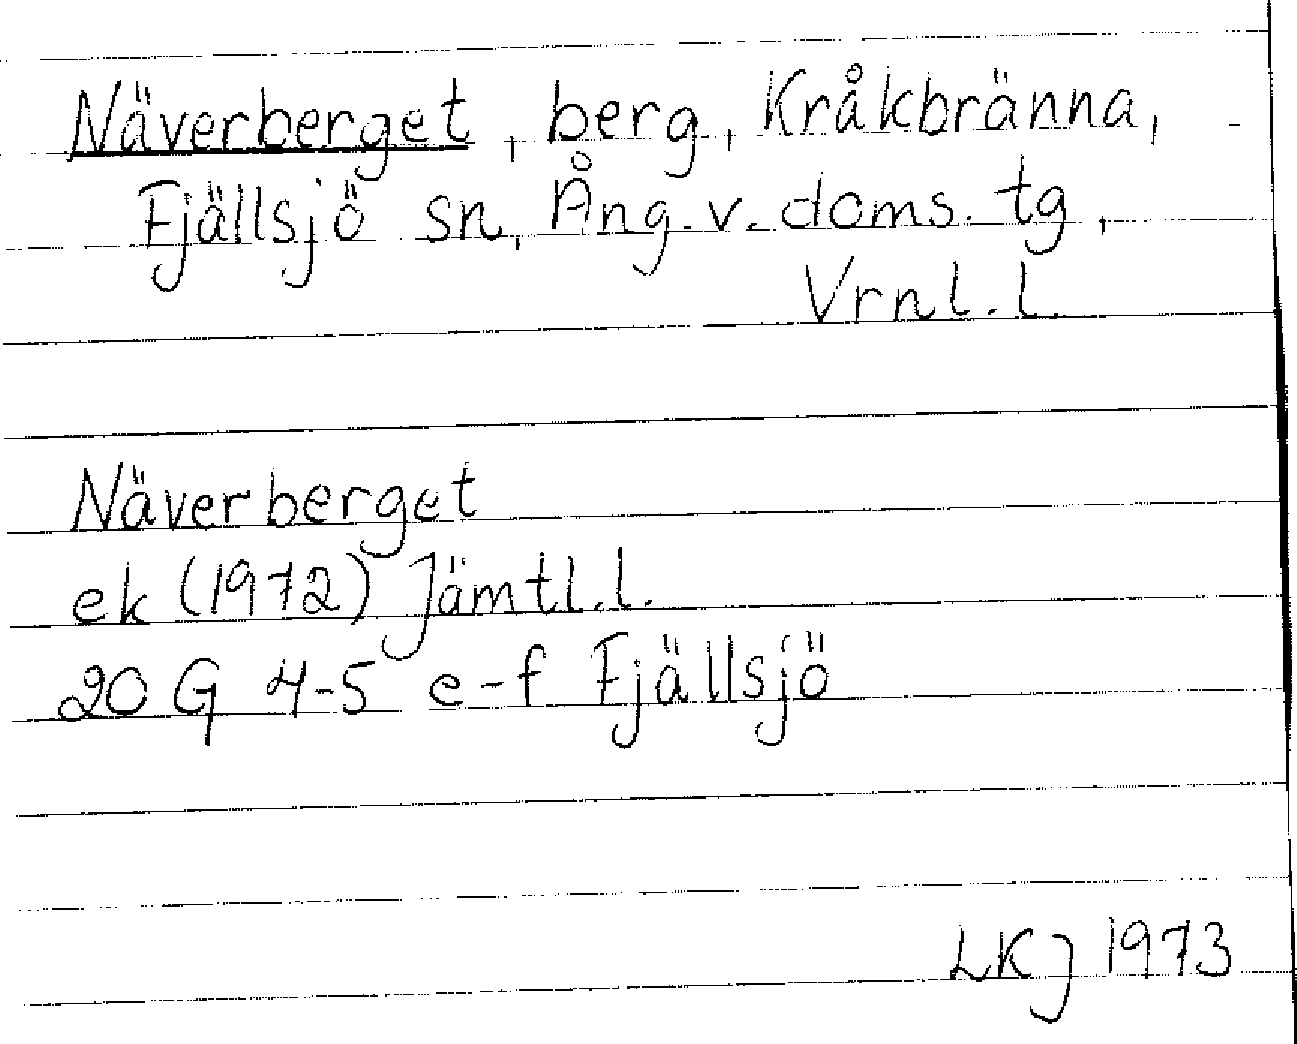 Näverberget, berg, Kråkbränna,
Fjällsjö sn, Ång. v. doms. tg,
Vrnl. l.
Näverberget
ek (1972) Jämtl. l.
20 G 4-5 e-f Fjällsjö
LKJ 1973